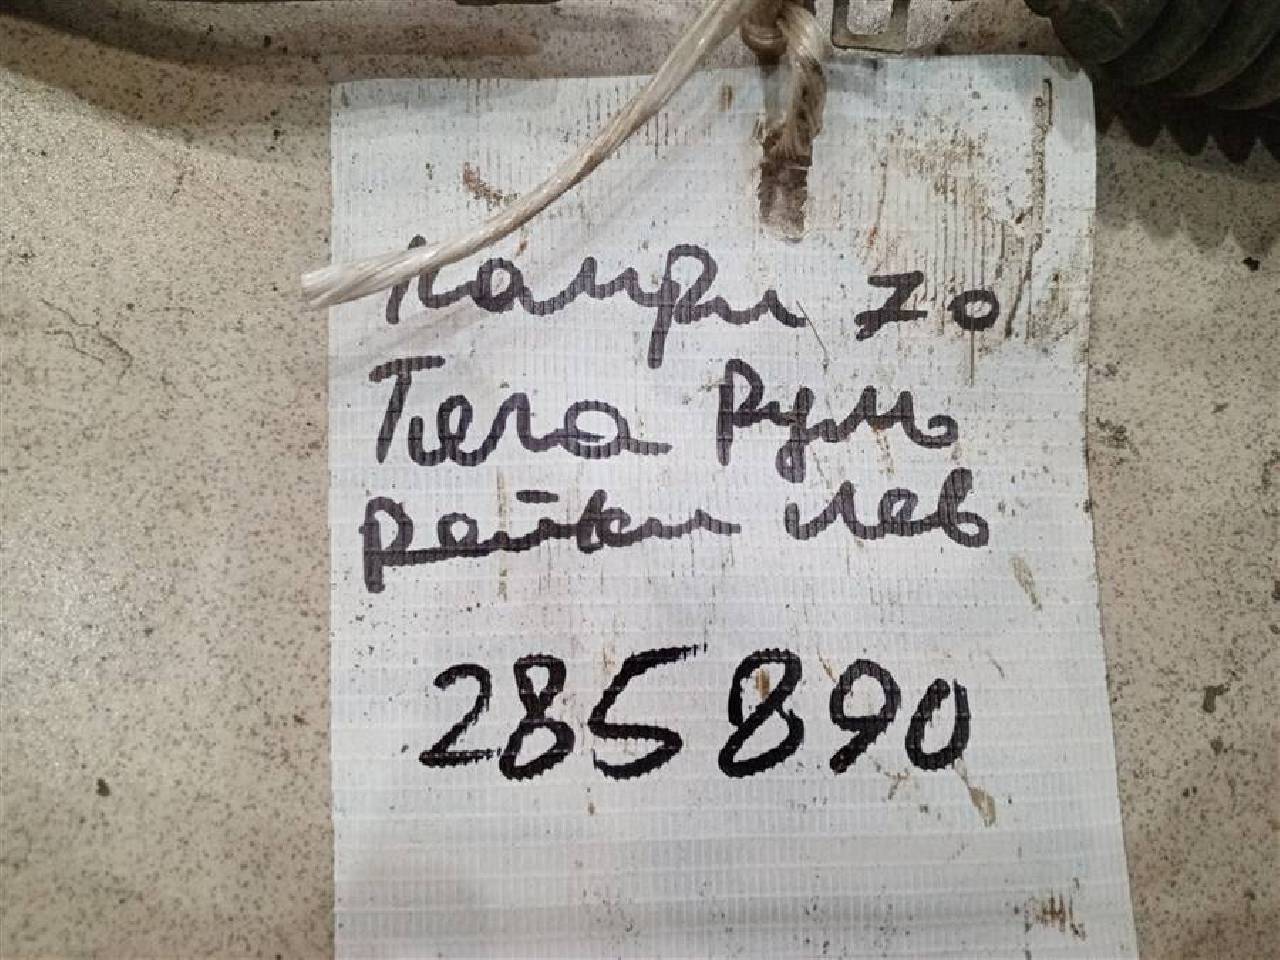 Камри 70
Тяга Руль
рейки лев
285890